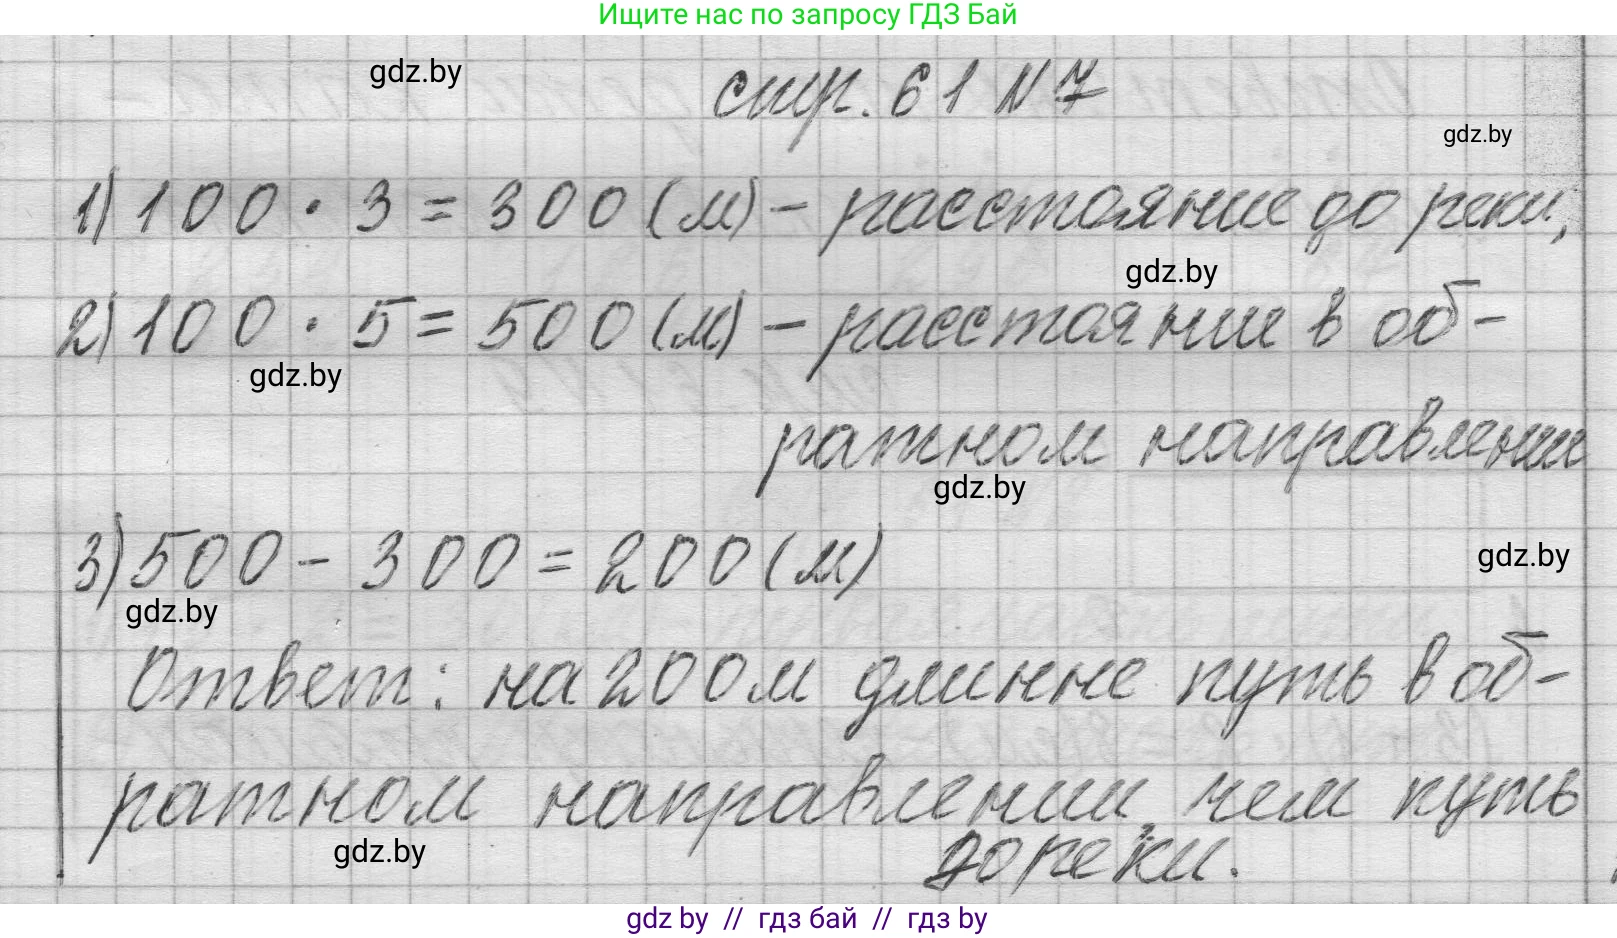 Ищите нас по запросу ГДЗ Бай
gdz.by
стр. 61 N 7
gdz.by
1) 100 · 3 = 300 (м) – расстояние до реки,
gdz.by
2) 100 · 5 = 500 (м) – расстояние в об-
gdz.by
ратном направлении
gdz.by
3) 500 – 300 = 200 (м)
gdz.by
gdz.by
Ответ: на 200 м длинне путь в об-
ратном направлении, чем путь
gdz.by
до реки.
gdz by // гдз бай // гдз by